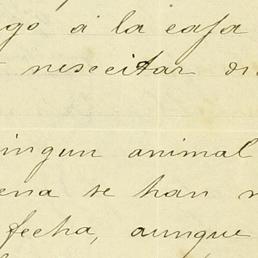 go á la casa
nescitar
ingun animal
ena se han
fecha, aunque